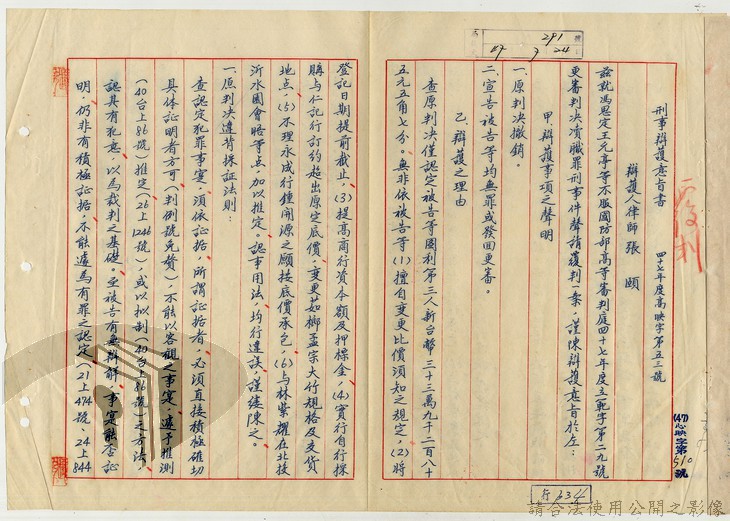 刑事辯護意旨書 四十七年度高映字第五三號
辯護人律師張頤
茲就馮思定王元亭等不服國防部高等審判庭四十七年度立範字第二九號
更審判決凟職罪刑事件聲請覆判一案，謹陳辯護意旨於左：
甲、辯護事項之聲明
一、原判決撤銷。
二、宣告被告等均無罪或發回更審。
乙、辯護之理由
查原判決僅認定被告等圖利第三人新台幣三十三萬九千二百八十
五元五角七分。無非依被告等(1)擅自變更比價須知之規定，(2)將
登記日期提前截止，(3)提高商行資本額及押標金，(4)實行自行採
購与仁記行訂約超出原定底價，變更茹榔孟宗大竹規格及交貨
地点，(5)不理永成行鍾開源之願按底價承包，(6)与林紫耀在北投
沂水園會晤等点，加以推定。認事用法，均行違誤，謹縷陳之。
一、原判決違背採証法則：
查認定犯罪事実，須依証据，所謂証据者，必須直接積極確切
具体証明者方可（判例號免贅），不能以客觀之事実，遽予推測
（40台上86號）推定（26上1246號）或以拟制（40台上86號）之方法，
認具有犯意，以為裁判之基礎。至被告有無辯解，事実能否証
明，仍非有積極証据，不能遽為有罪之認定（21上474號 24上844
覆判
(47)心映字第510號
291
47 7 24
行 634
請合法使用公開之影像